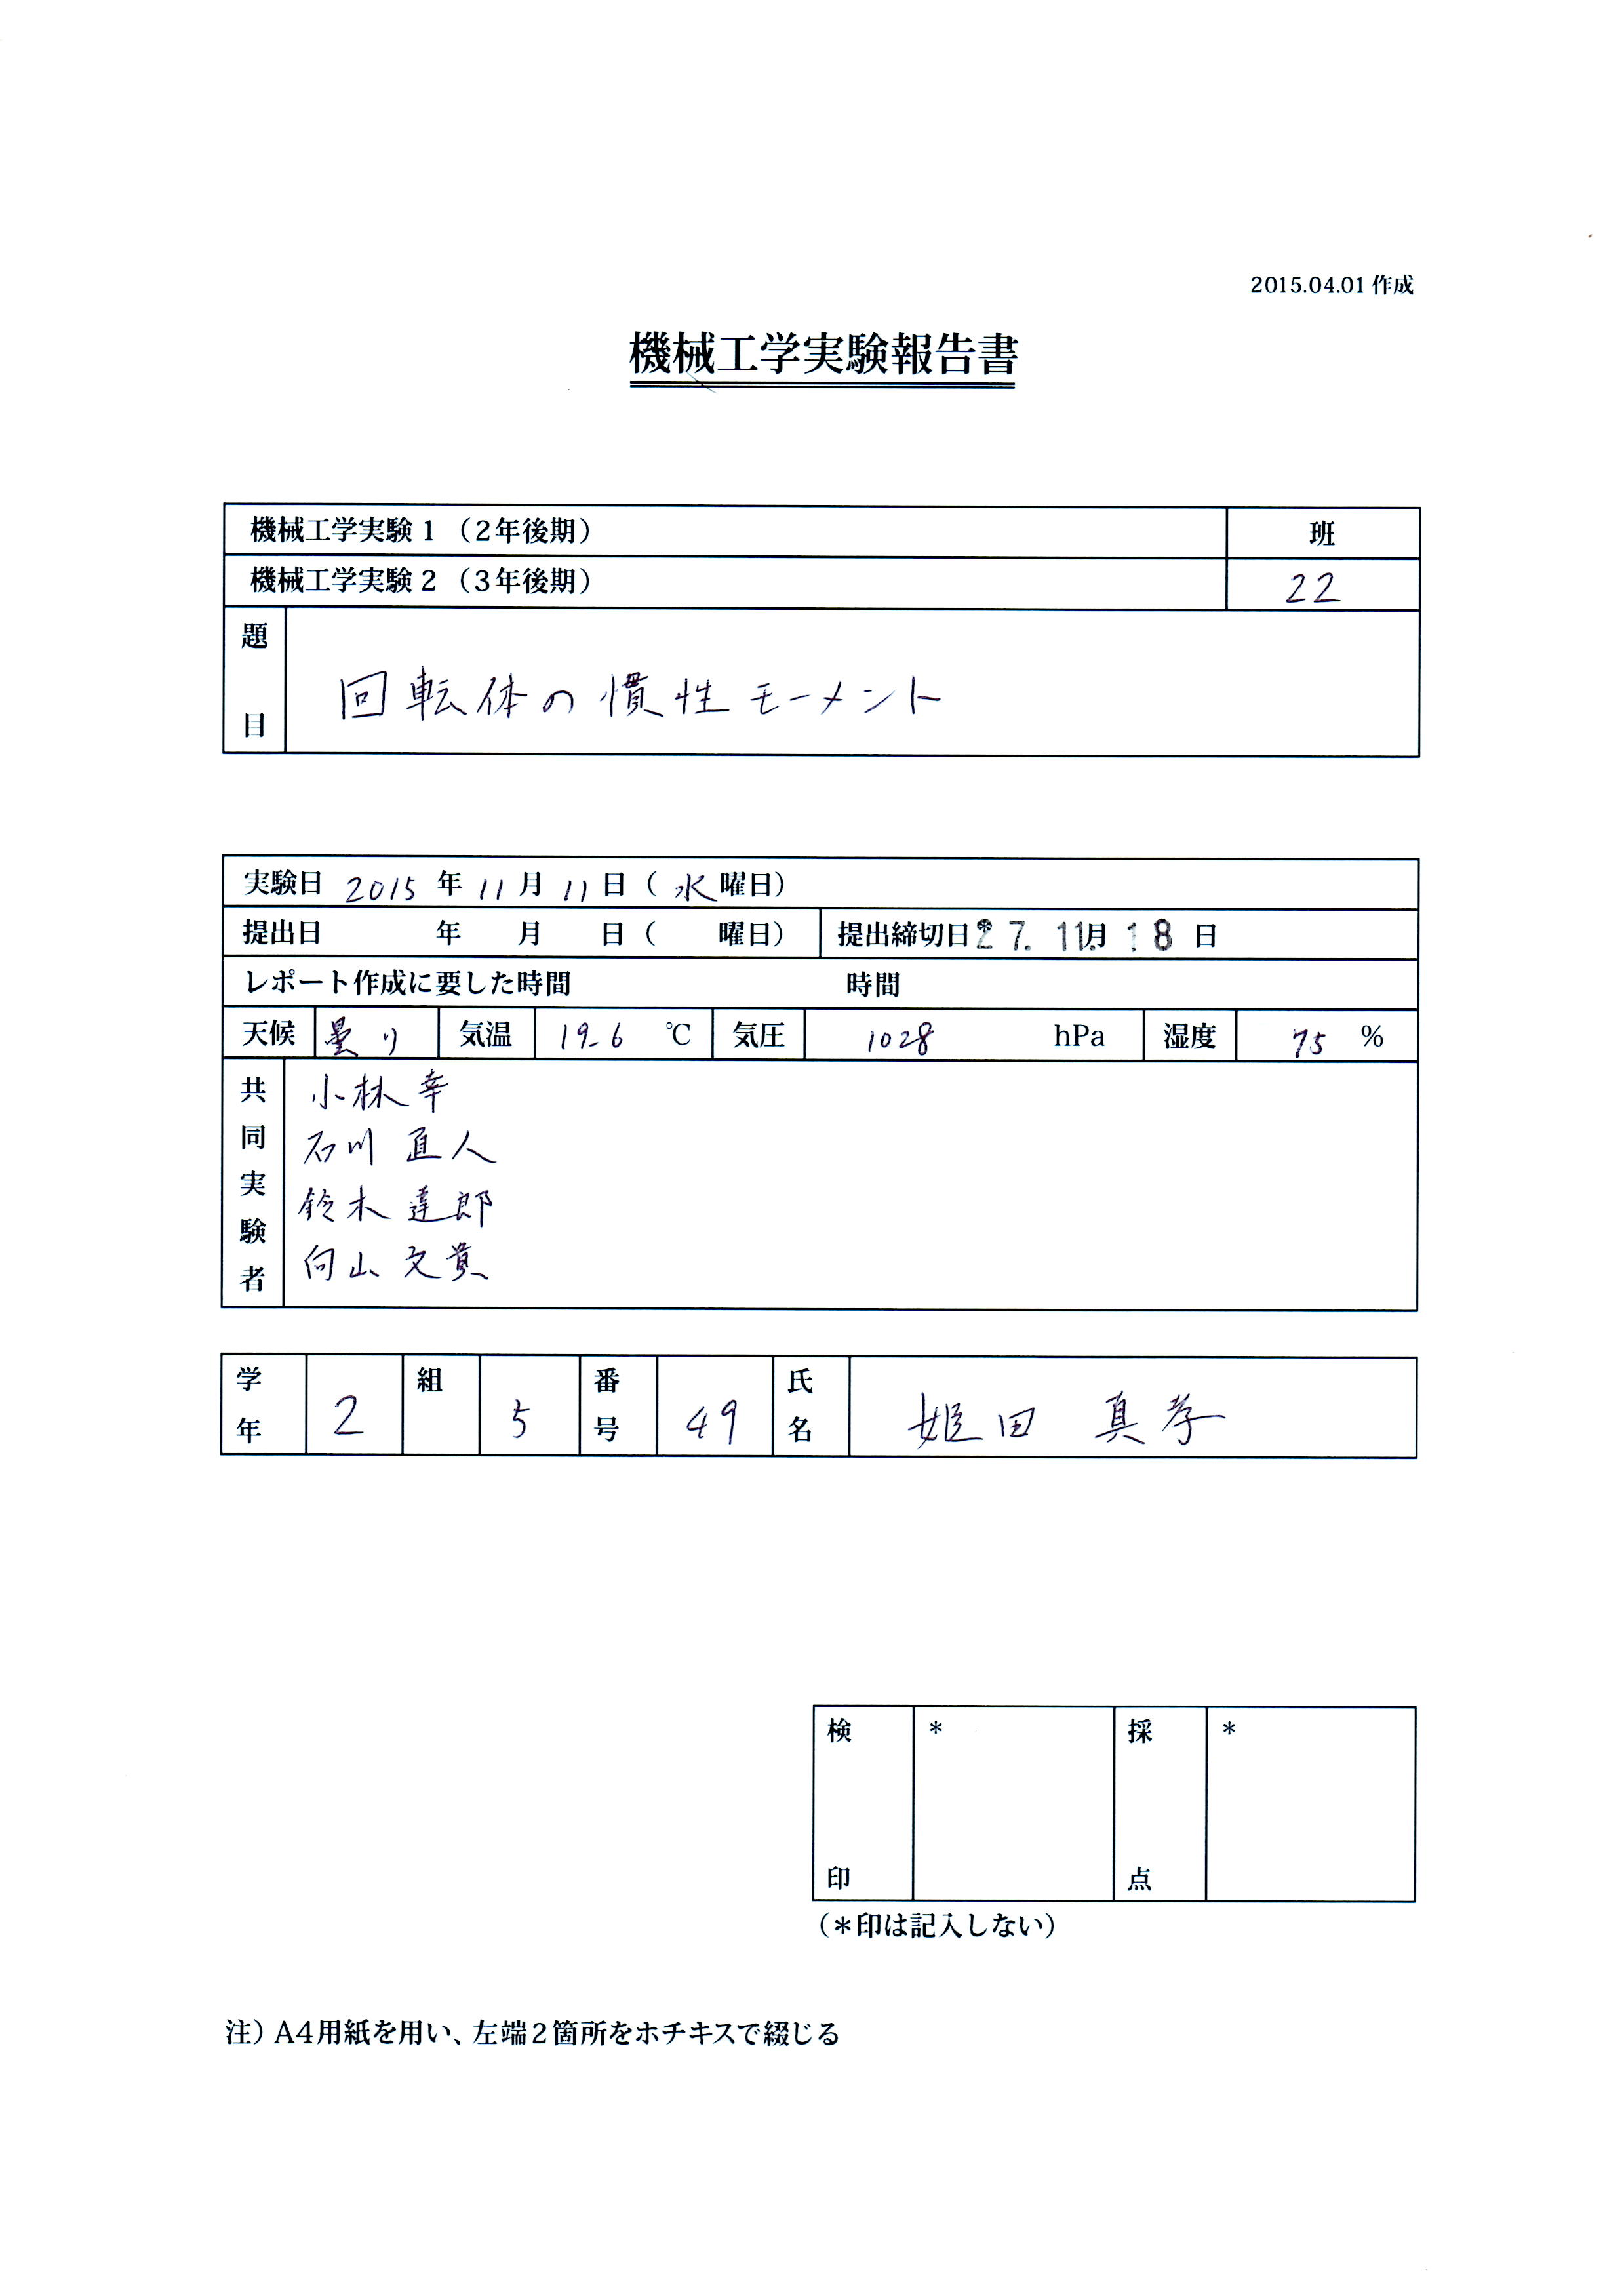 2015.04.01 作成
機械工学実験報告書
機械工学実験 1 (2年後期) 班
機械工学実験 2 (3年後期) 22
題目 回転体の慣性モーメント
実験日 2015 年 11 月 11 日 ( 水 曜日)
提出日 年 月 日 ( 曜日) 提出締切日 27. 11月 18 日
レポート作成に要した時間 時間
天候 曇り 気温 19.6 ℃ 気圧 1028 hPa 湿度 75 %
共同実験者 小林 幸
石川 直人
鈴木 達郎
向山 文貴
学年 2 組 5 番号 49 氏名 姫田 真孝
検印 * 採点 *
(*印は記入しない)
注) A4用紙を用い、左端2箇所をホチキスで綴じる